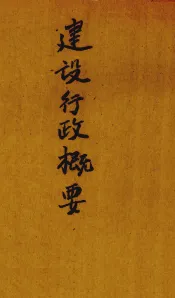 建设行政概要